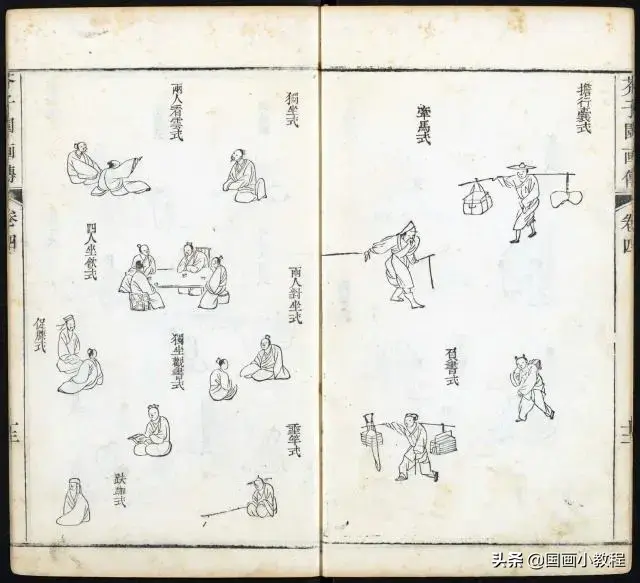 芥子園画傳
卷四
擔行囊式
牽馬式
書式
獨坐式
兩人看雲式
兩人對坐式
四人坐飲式
獨坐觀書式
促膝式
垂竿式
趺坐式
芥子園画傳
卷四
十三
头条 @国画小教程